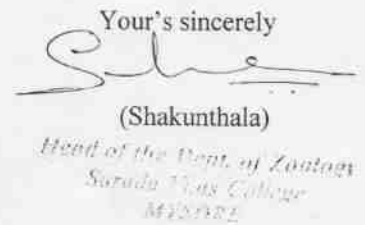 Your's sincerely
(Shakunthala)
Head of the Dept. of Zoology
Sarada Vilas College
MYSORE